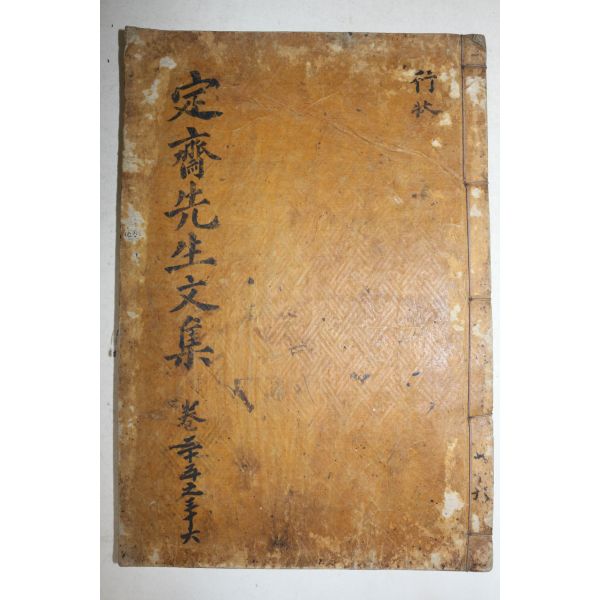 行狀
定齋先生文集
卷三十五之三十六